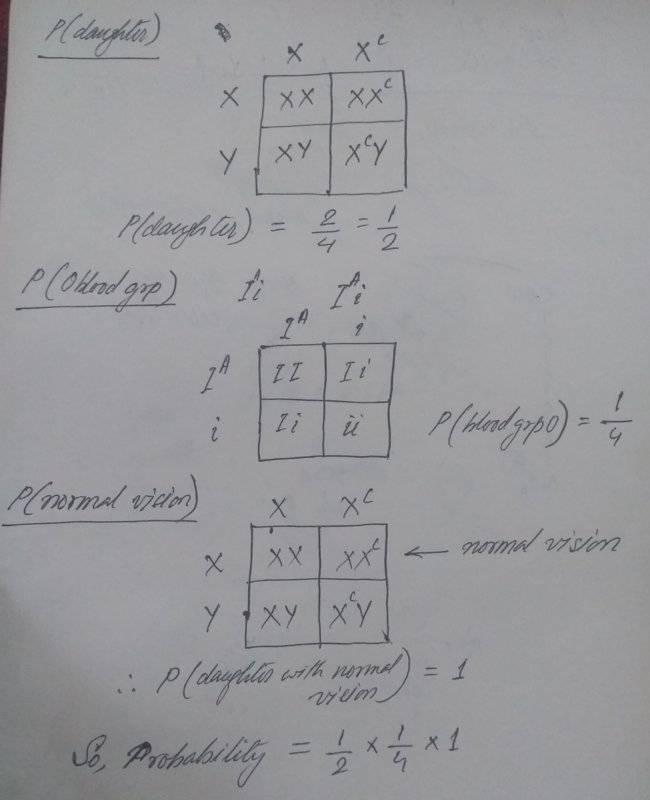 P(daughter)
X X^c
X XX XX^c
Y XY X^cY
P(daughter) = 2/4 = 1/2
P(O blood grp) I^Ai I^Ai
I^A i
I^A II Ii
i Ii ii P(blood grp O) = 1/4
P(normal vision)
X X^c
X XX XX^c ← normal vision
Y XY X^cY
∴ P(daughter with normal vision) = 1
So, Probability = 1/2 × 1/4 × 1